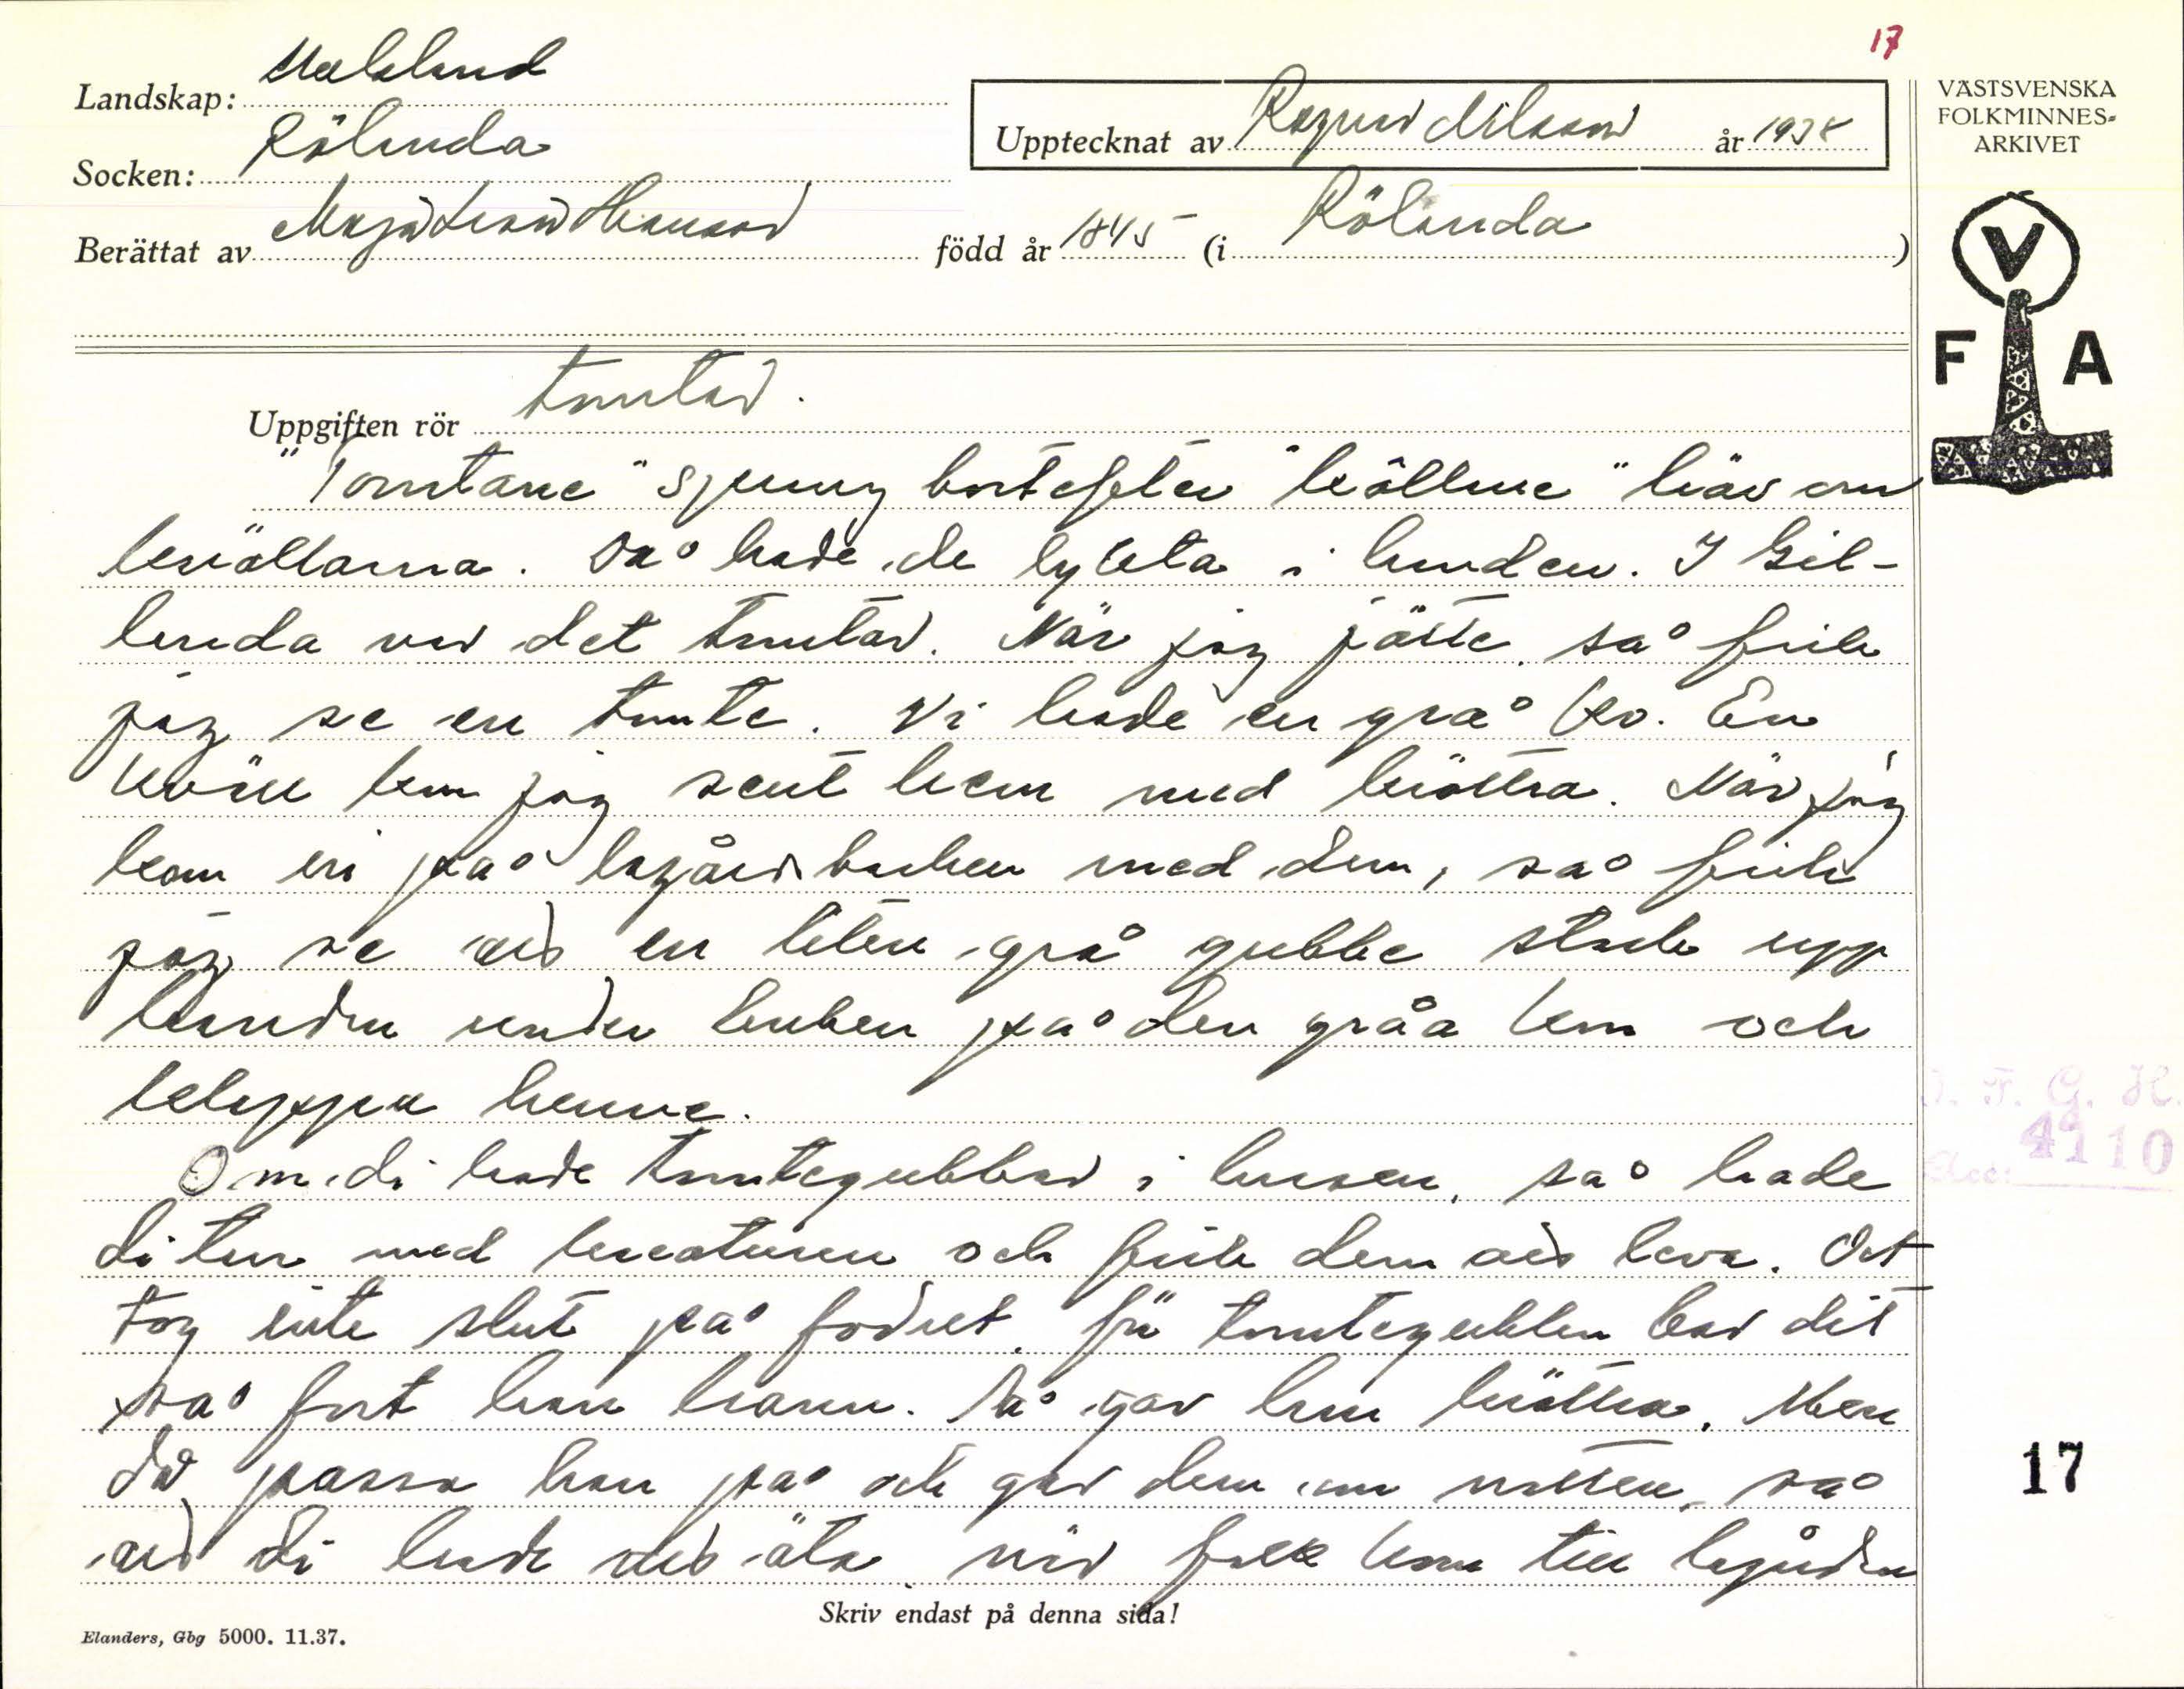 17
Landskap: Dalsland
Socken: Rölanda
Berättat av Maja Lisa Hansson född år 1845 (i Rölanda)
Upptecknat av Ragnar Nilsson år 1938
VÄSTSVENSKA
FOLKMINNES-
ARKIVET
V
F A
Uppgiften rör Tomtar.
"Tomtane" sprung bortefter "kvällne" här om
kvällarna. Så hade de lykta i handen. I Gil-
landa var det tomtar. När jag jätte, så fick
jag se en tomte. Vi hade en grå ko. En
kväll kom jag sent hem med krättra. När jag
kom in på lagårsbacken med dem, så fick
jag se att en liten grå gubbe stack upp
handen under buken på den gråa kon och
klappa henne.
Om di hade tomtegubbar i husen, så hade
di tur med kreaturen och fick dem att leva. Det
tog inte slut på fodret, för tomtegubben bar dit
så fort han hann. Så gav han krättra. Men
då passa han på och gav dem om natten, så
att di hade att äta när folk kom till lagården
Skriv endast på denna sida!
Elanders, Gbg 5000. 11.37.
I. F. G. H.
Acc: 4110
17